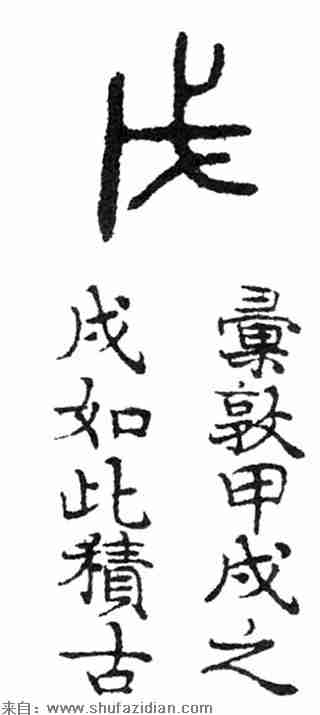 戌
彙敦甲戌之
戌如此積古
来自：www.shufazidian.com